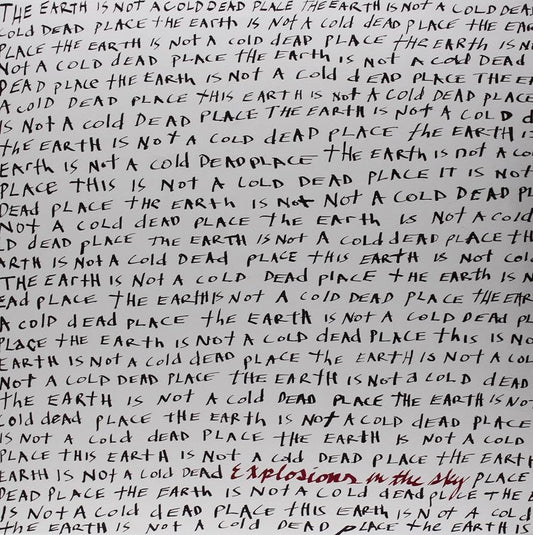 THE EARTH IS NOT A COLD DEAD PLACE THE EARTH IS NOT A COLD DEAD
COLD DEAD PLACE THE EARTH IS NOT A COLD DEAD PLACE THE EAR
PLACE THE EARTH IS NOT A COLD DEAD PLACE THE EARTH IS N
NOT A COLD DEAD PLACE THE EARTH IS NOT A COLD DEAD
DEAD PLACE THE EARTH IS NOT A COLD DEAD PLACE THE EA
A COLD DEAD PLACE THIS EARTH IS NOT A COLD DEAD PLACE
IS NOT A COLD DEAD PLACE THE EARTH IS NOT A COLD D
THE EARTH IS NOT A COLD DEAD PLACE THE EARTH I
EARTH IS NOT A COLD DEAD PLACE THE EARTH IS NOT A CO
PLACE THIS IS NOT A COLD DEAD PLACE IT IS NOT
DEAD PLACE THE EARTH IS NOT NOT A COLD DEAD PL
NOT A COLD DEAD PLACE THE EARTH IS NOT A COLD
LD DEAD PLACE THE EARTH IS NOT A COLD DEAD PLACE TH
ARTH IS NOT A COLD DEAD PLACE THIS EARTH IS NOT COL
THE EARTH IS NOT A COLD DEAD PLACE THE EARTH IS N
EAD PLACE THE EARTH IS NOT A COLD DEAD PLACE THE EAR
A COLD DEAD PLACE THE EARTH IS NOT A COLD DEAD
PLACE THE EARTH IS NOT A COLD DEAD PLACE THIS IS NO
EARTH IS NOT A COLD DEAD PLACE THE EARTH IS NOT A COL
NOT A COLD DEAD PLACE THE EARTH IS NOT A COLD DEAD
THE EARTH IS NOT A COLD DEAD PLACE THE EARTH IS NO
COLD DEAD PLACE THE EARTH IS NOT A COLD DEAD PLACE
IS NOT A COLD DEAD PLACE THE EARTH IS NOT A COLD
PLACE THIS EARTH IS NOT A COLD DEAD PLACE THE EARTH
EARTH IS NOT A COLD DEAD Explosions in the sky PLACE
DEAD PLACE THE EARTH IS NOT A COLD DEAD PLACE THE E
IS NOT A COLD DEAD PLACE THIS EARTH IS NOT A COLD
THE EARTH IS NOT A COLD DEAD PLACE THE EARTH IS